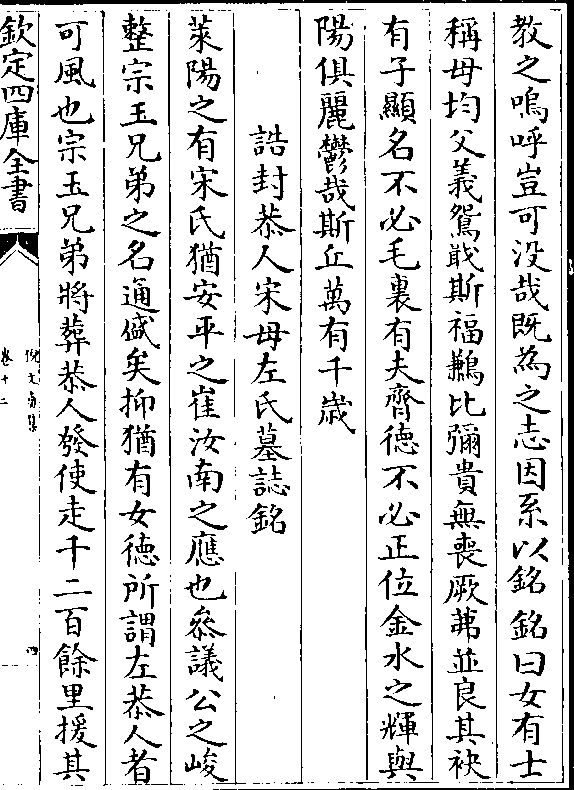 教之嗚呼豈可没哉既為之志因系以銘銘曰女有士
稱母均父義鴛戢斯福鶼比彌貴無喪厥茀並良其袂
有子顯名不必毛裏有夫齊徳不必正位金水之輝與
陽俱麗鬱哉斯丘萬有千歲
誥封恭人宋母左氏墓誌銘
萊陽之有宋氏猶安平之崔汝南之應也叅議公之峻
整宗玉兄弟之名通盛矣抑猶有女徳所謂左恭人者
可風也宗玉兄弟將葬恭人發使走千二百餘里援其
欽定四庫全書
倪文貞集
卷十二
四